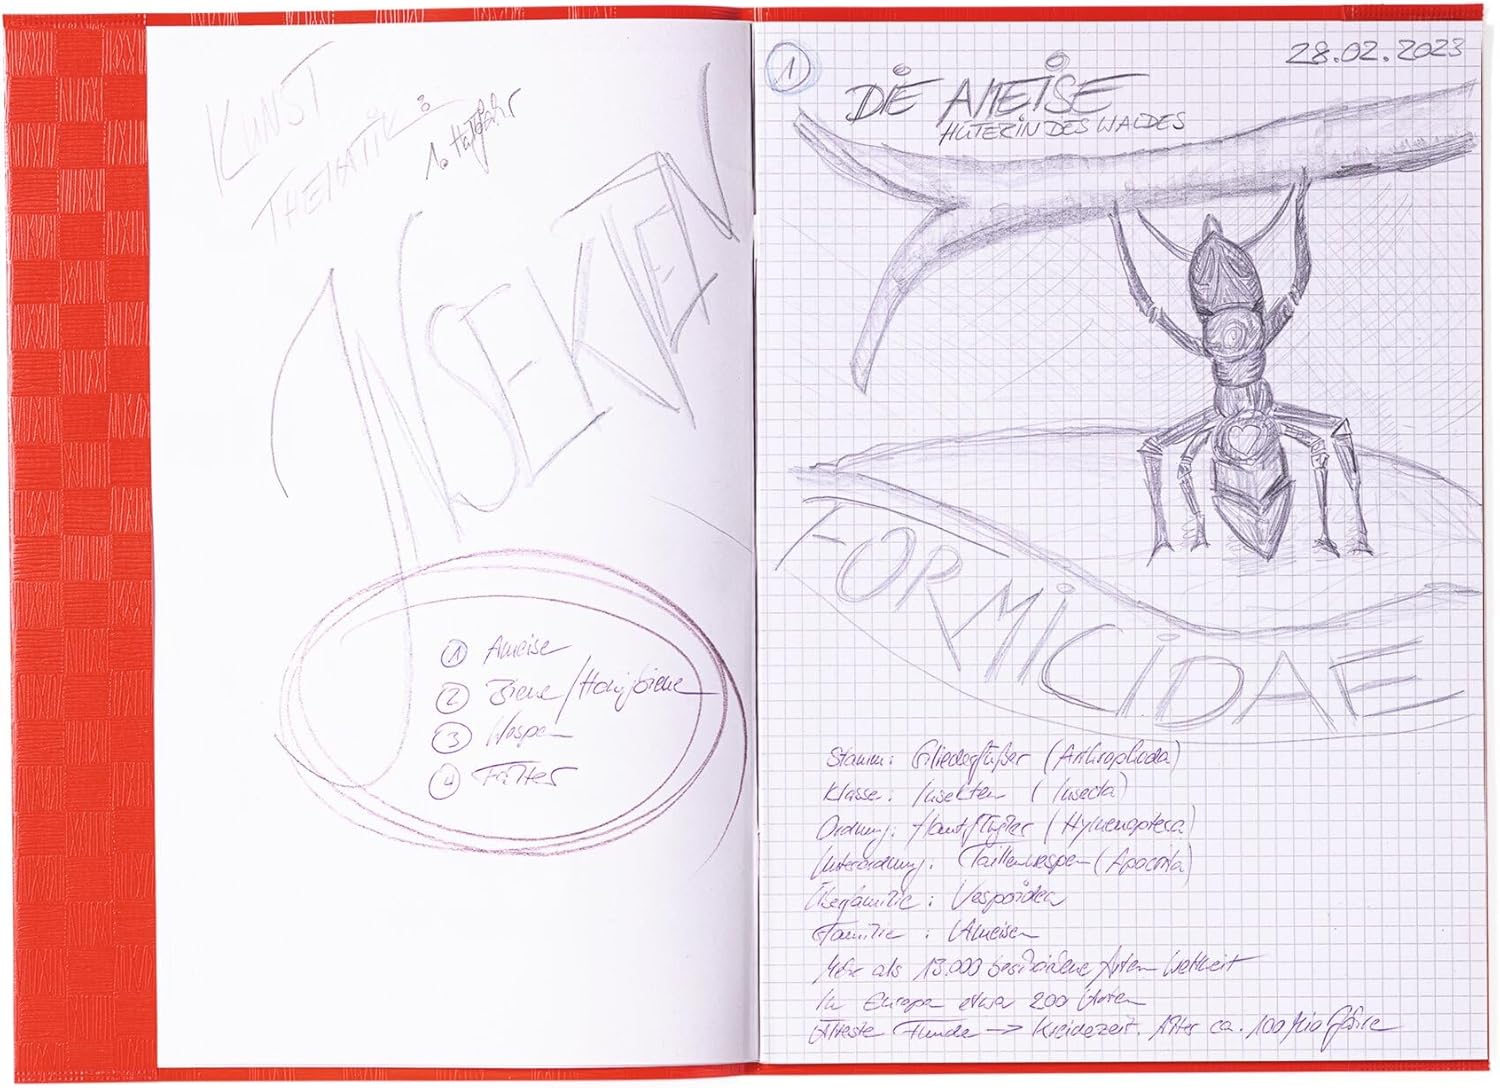 KUNST
THEMATIK:
1. Halbjahr
INSEKTEN
1 Ameise
2 Biene/Honigbiene
3 Wespe
4 Falter
1
28.02.2023
DIE AMEISE
HÜTERIN DES WALDES
FORMICIDAE
Stamm: Gliederfüßer (Arthrophoda)
Klasse: Insekten (Insecta)
Ordnung: Hautflügler (Hymenoptera)
Unterordnung: Taillenwespen (Apocrita)
Überfamilie: Vespoidea
Familie: Ameisen
Mehr als 13.000 beschriebene Arten Weltweit
In Europa etwa 200 Arten
Älteste Funde -> Kreidezeit. Alter ca. 100 Mio Jahre